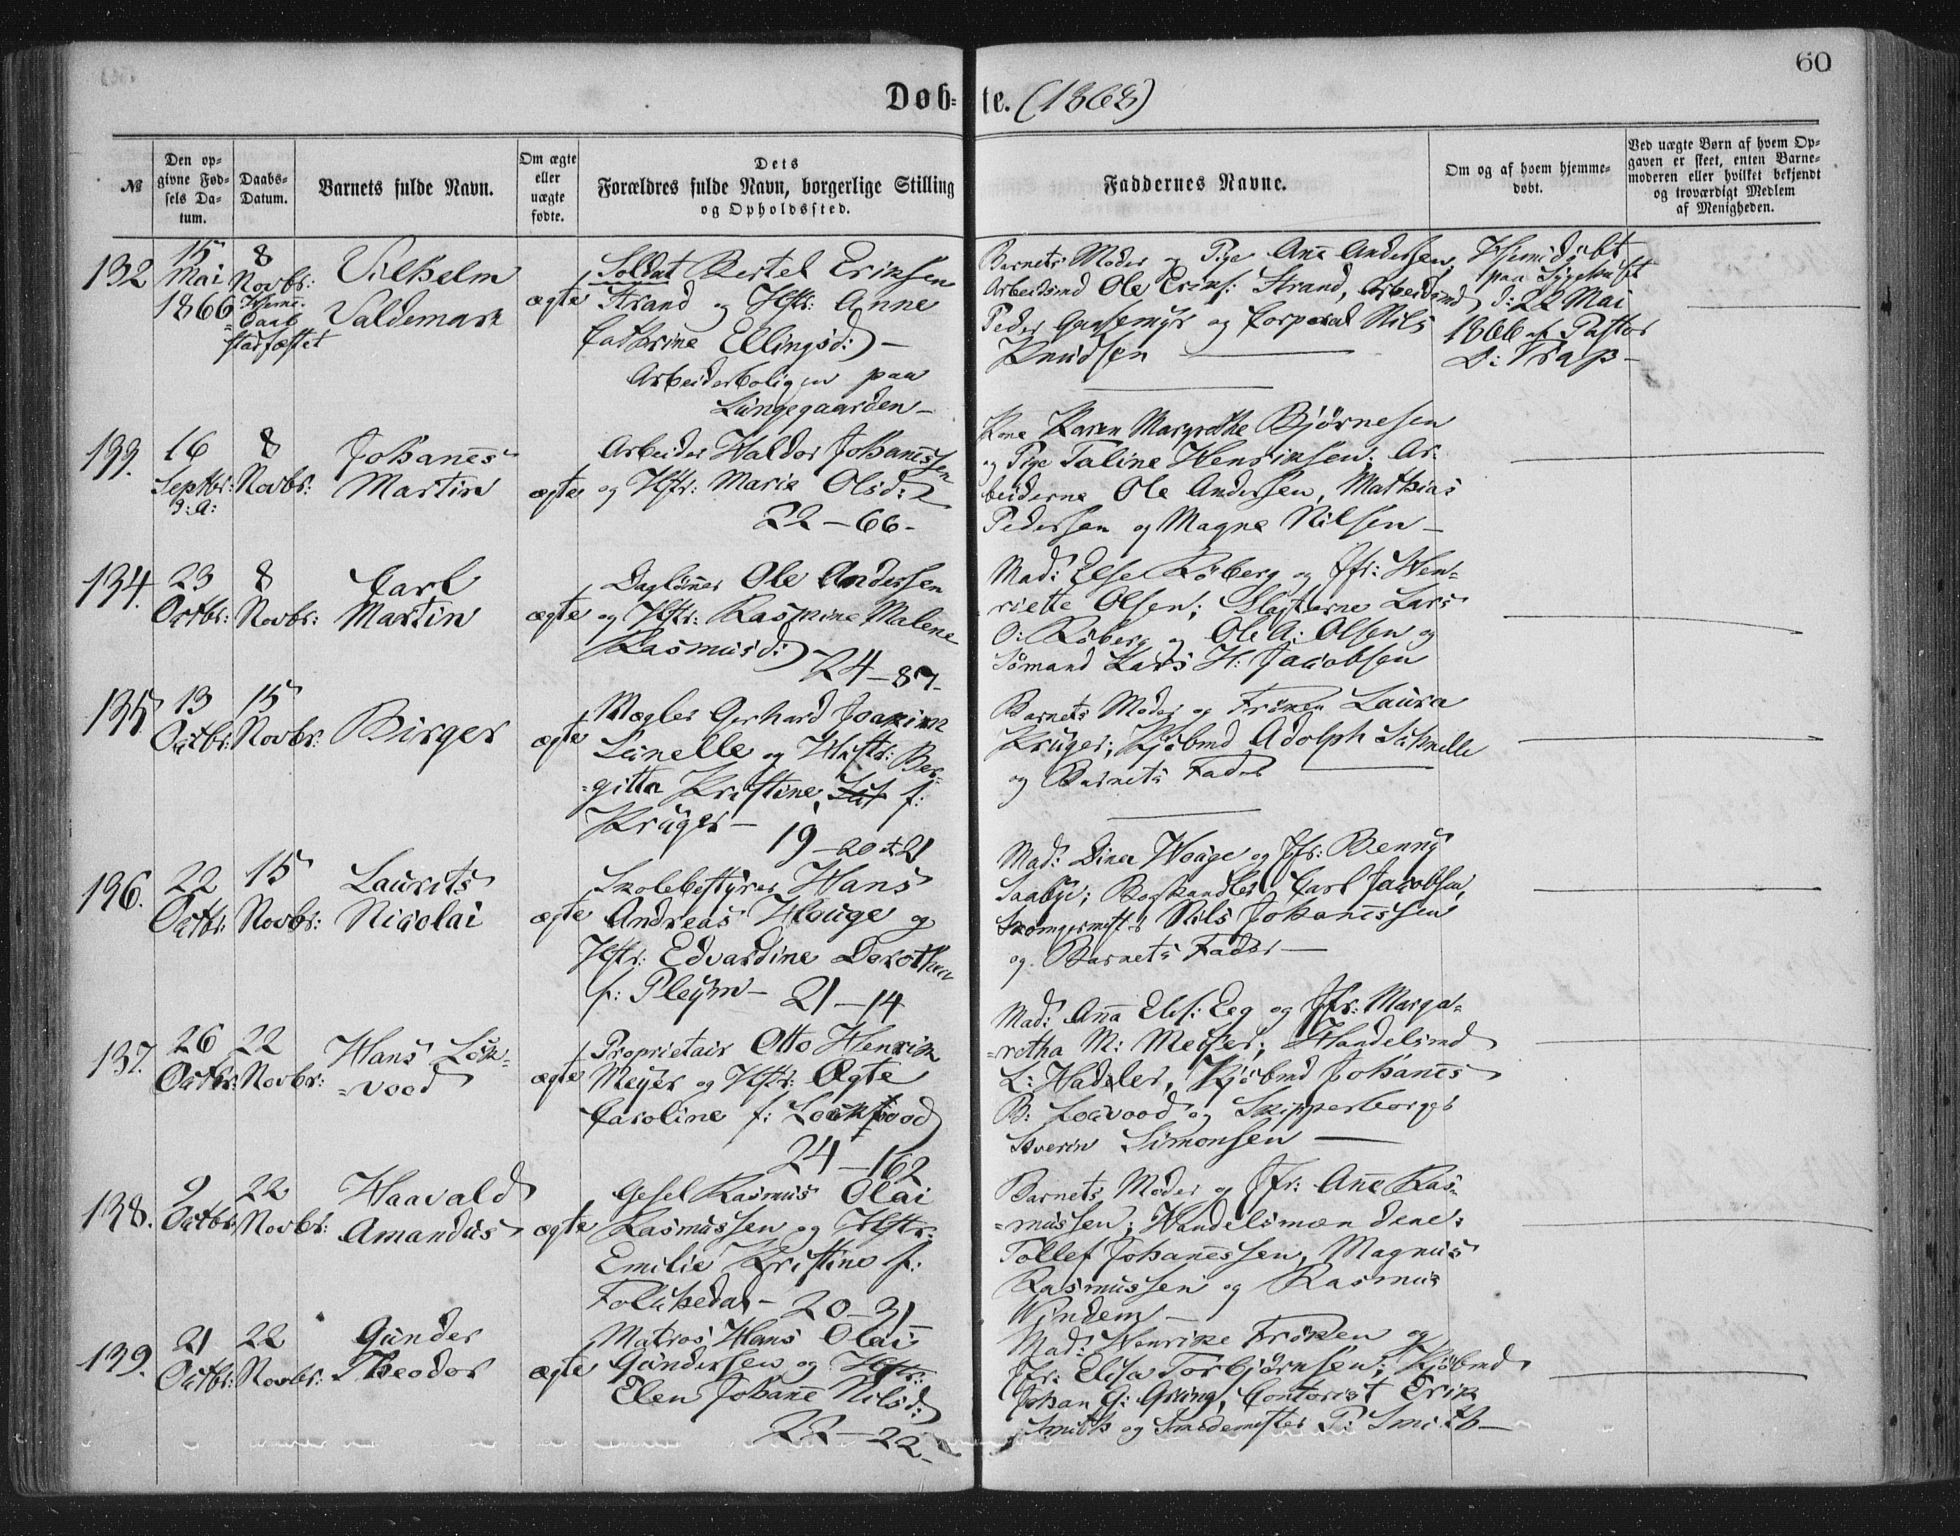 60
Døb- te. (1868)
№
Den op-
givne Fød-
sels Da-
tum.
Daabs-
Datum.
Barnets fulde Navn.
Om ægte
eller
uægte
fødte.
Dets
Forældres fulde Navn, borgerlige Stilling
og Opholdssted.
Faddernes Navne.
Om og af hvem hjemme-
døbt.
Ved uægte Børn af hvem Op-
gaven er skeet, enten Barne-
moderen eller hvilket bekjendt
og troværdigt Medlem
af Menigheden.
132
15
Mai
1866
8
Novbr:
Hjemme-
Daab
stadfæstet
Vilhelm
Valdemark
ægte
Soldat Bertel Eriksen
Strand og Hstr: Anne
Cathrine Ellingsd:
Arbeiderboligen paa
Lungegaarden
Barnets Moder og Pige Ane Andersen,
Arbeidsmd Ole Eriks: Strand, Arbeidsmd
Peder og Corporal Nils
Knudsen
Hjemmedøbt
paa Sygehuset
d: 22 Mai
1866 af Pastor
D: Trap
133.
16
Septbr:
8
Novbr:
Johanes
Martin
ægte
Arbeider Haldor Johanessen
og Hstr: Marie Olsd:
22-66-
Kone Karen Margrethe Bjørnesen
og Pige Taline Henriksen, Ar-
beiderne Ole Andersen, Mathias
Pedersen og Magne Nilsen
134.
23
Octbr:
8
Novbr:
Carl
Martin
ægte
Dagløner Ole Andersen
og Hstr: Rasmine Malene
Rasmusd:
24-87-
Mad: Else Røberg og Jfr: Hen-
riette Olsen; Slagterne Lars
O: Røberg og Ole A: Olsen og
Sømand Lars H: Jacobsen
135
13
Octbr:
15
Novbr:
Birger
ægte
Mægler Gerhard Joakim
Sunelle og Hustr: Ber-
gitta Kristine f:
Kruger
19-20+21
Barnets Moder og Frøken Laura
Kruger; Kjøbmd Adolph
og Barnets Fader
136.
22
Octbr:
15
Novbr:
Laurits
Nicolai
ægte
Skolebestyrer Hans
Andreas Houge og
Hstr: Edvardine Dorothea
f: Pleym
21-14
Mad: Dina Houge og Jfr: Benny
Saabye; Boghandler Carl Jacobsen,
Skomagermester Nils Johanessen
og Barnets Fader
137.
26
Octbr:
22
Novbr:
Hans Lök-
vood
ægte
Proprietair Otto Henrik
Meyer og Hstr: Ægte
Caroline f: Lockwood
24-162
Mad: Anna Elis: Eeg og Jfr: Marga-
retha M: Meyer; Handelsmd
L: Hadeler, Kjøbmd Johanes
B: Locvood og Skipperborger
Severin Simonsen
138.
9
Octbr:
22
Novbr:
Haavald
Amandus
ægte
Gesel Rasmus Olai
Rasmussen og Hstr:
Emilie Kristine f:
20-31
Barnets Moder og Jfr: Ane Ras-
mussen; Handelsmændene:
Tollef Johanessen, Magnus
Rasmussen og Rasmus
139.
21
Octbr:
22
Novbr:
Gunder
Theodor
ægte
Matros Hans Olai
Gundersen og Hstr:
Elen Johane Nilsd:
22-22-
Mad: Henrike Frøken og
Jfr: Elisa Torbjørnsen; Kjøbmd
Johan G: Grung, Contorist Erik
Smith og Smedemester P: Smith